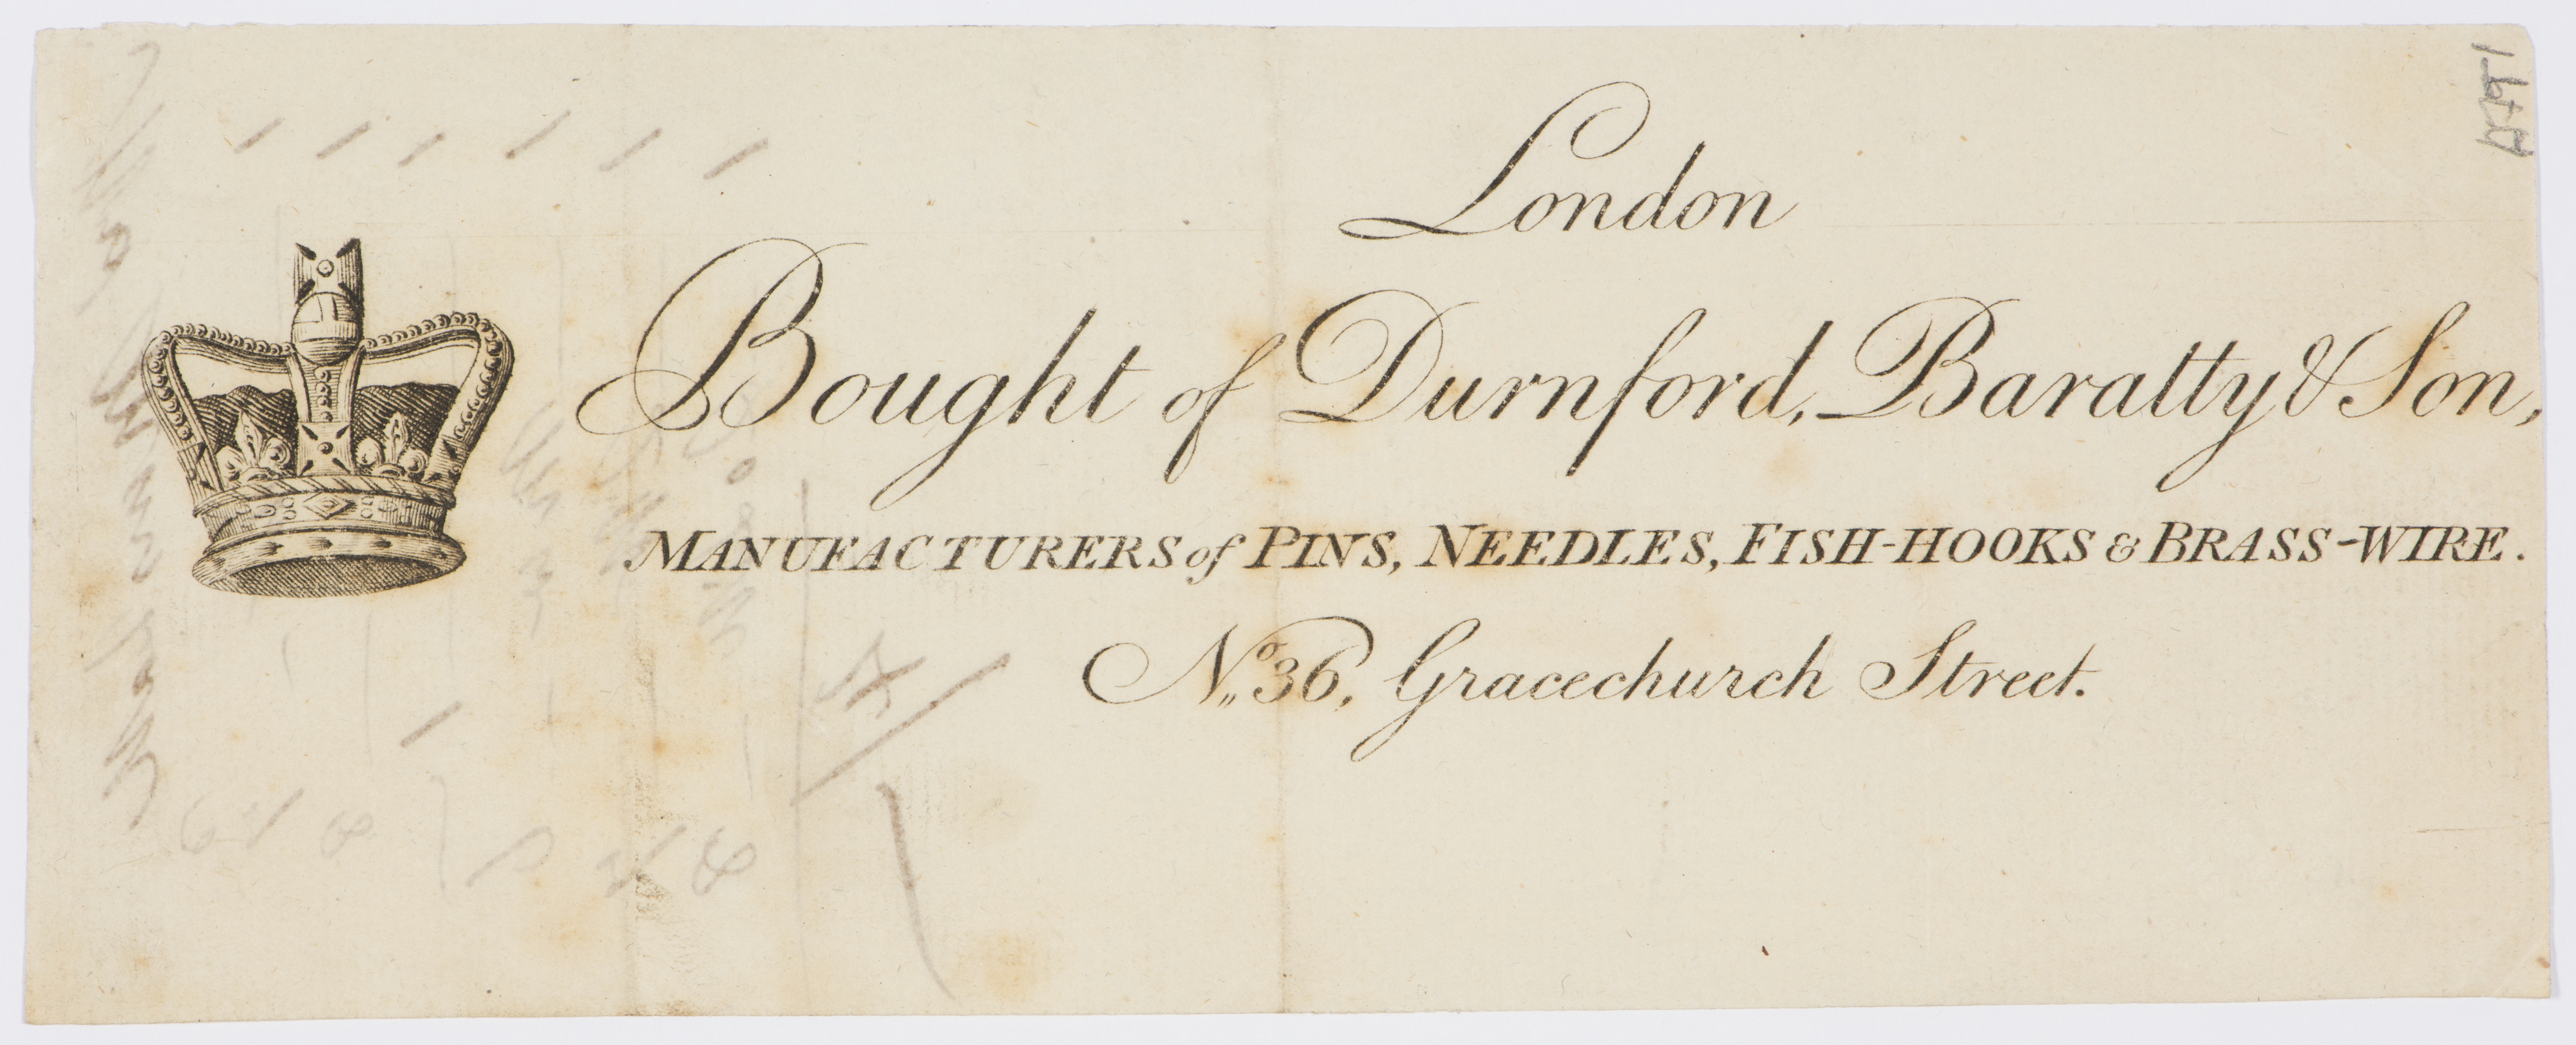 London
Bought of Durnford, Baratty & Son,
MANUFACTURERS of PINS, NEEDLES, FISH-HOOKS & BRASS-WIRE.
No. 36, Gracechurch Street.